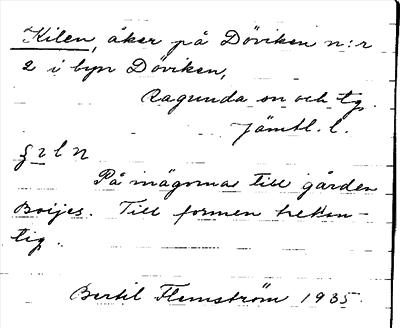 Kilen, åker på Döviken n:r
2 i byn Döviken,
Ragunda sn och tg.
Jämtl. l.
På inägorna till gården
Boijes. Till formen trekan-
tig.
Bertil Flemström 1935.